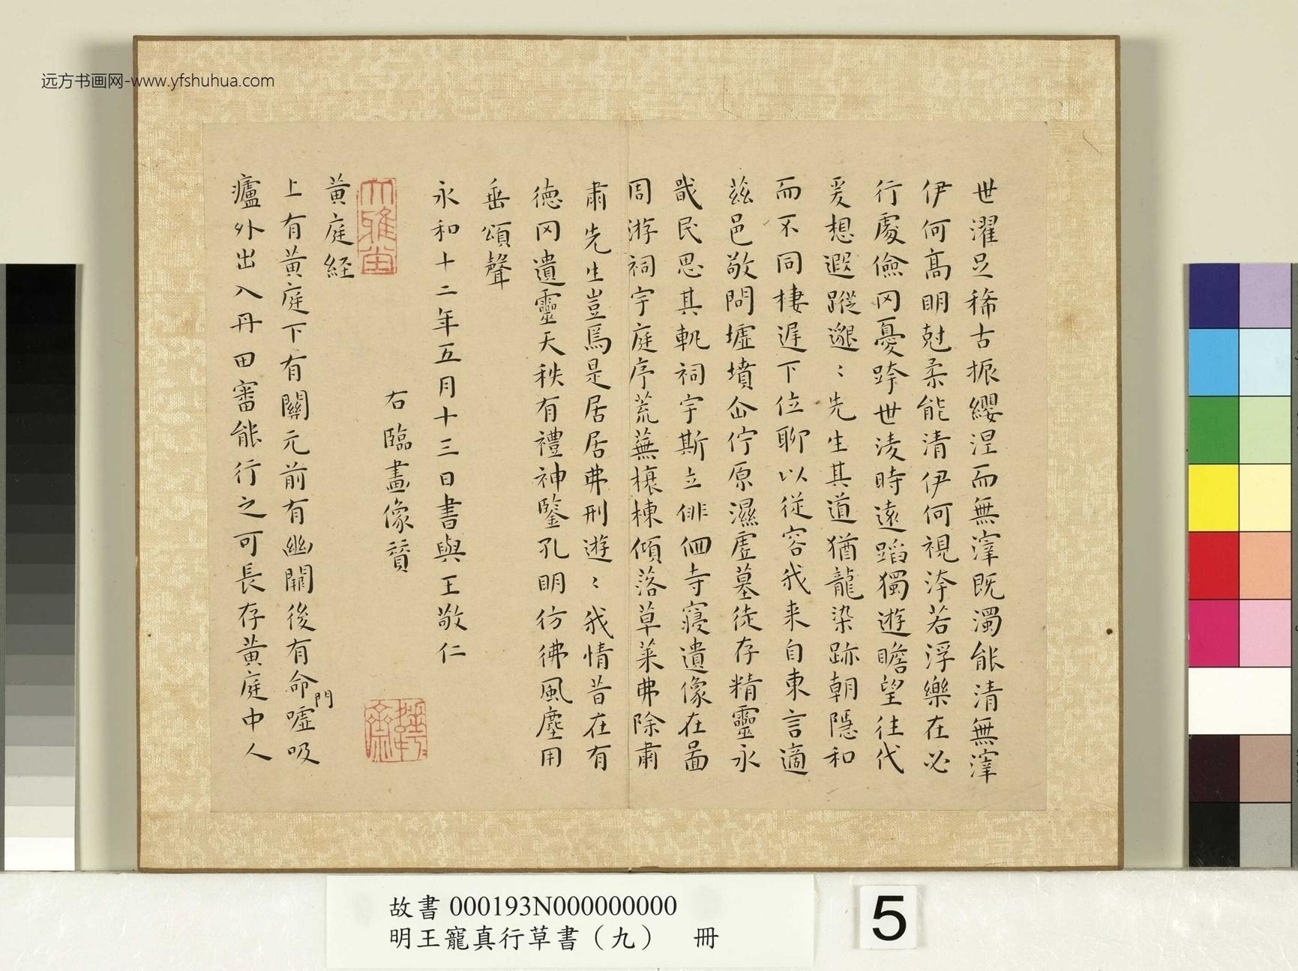 远方书画网-www.yfshuhua.com
世濯足稀古振纓涅而無滓既濁能清無滓
伊何高明尅柔能清伊何視洿若浮樂在必
行處儉罔憂跨世淩時遠蹈獨遊瞻望往代
爰想遐蹤邈〻先生其道猶龍染跡朝隱和
而不同棲遲下位聊以從容我来自東言適
茲邑敬問墟墳企佇原濕虛墓徒存精靈永
戢民思其軌祠宇斯立俳佪寺寢遺像在啚
周游祠宇庭序荒蕪榱棟傾落草萊弗除肅
肅先生豈焉是居居弗刑遊〻我情昔在有
德罔遺靈天秩有禮神鑒孔明彷彿風塵用
垂頌聲
永和十二年五月十三日書與王敬仁
右臨畫像贊
大雅堂
黃庭経
上有黃庭下有關元前有幽闕後有命門噓吸
廬外出入丹田審能行之可長存黃庭中人
故書000193N000000000
明王寵真行草書（九） 冊
5